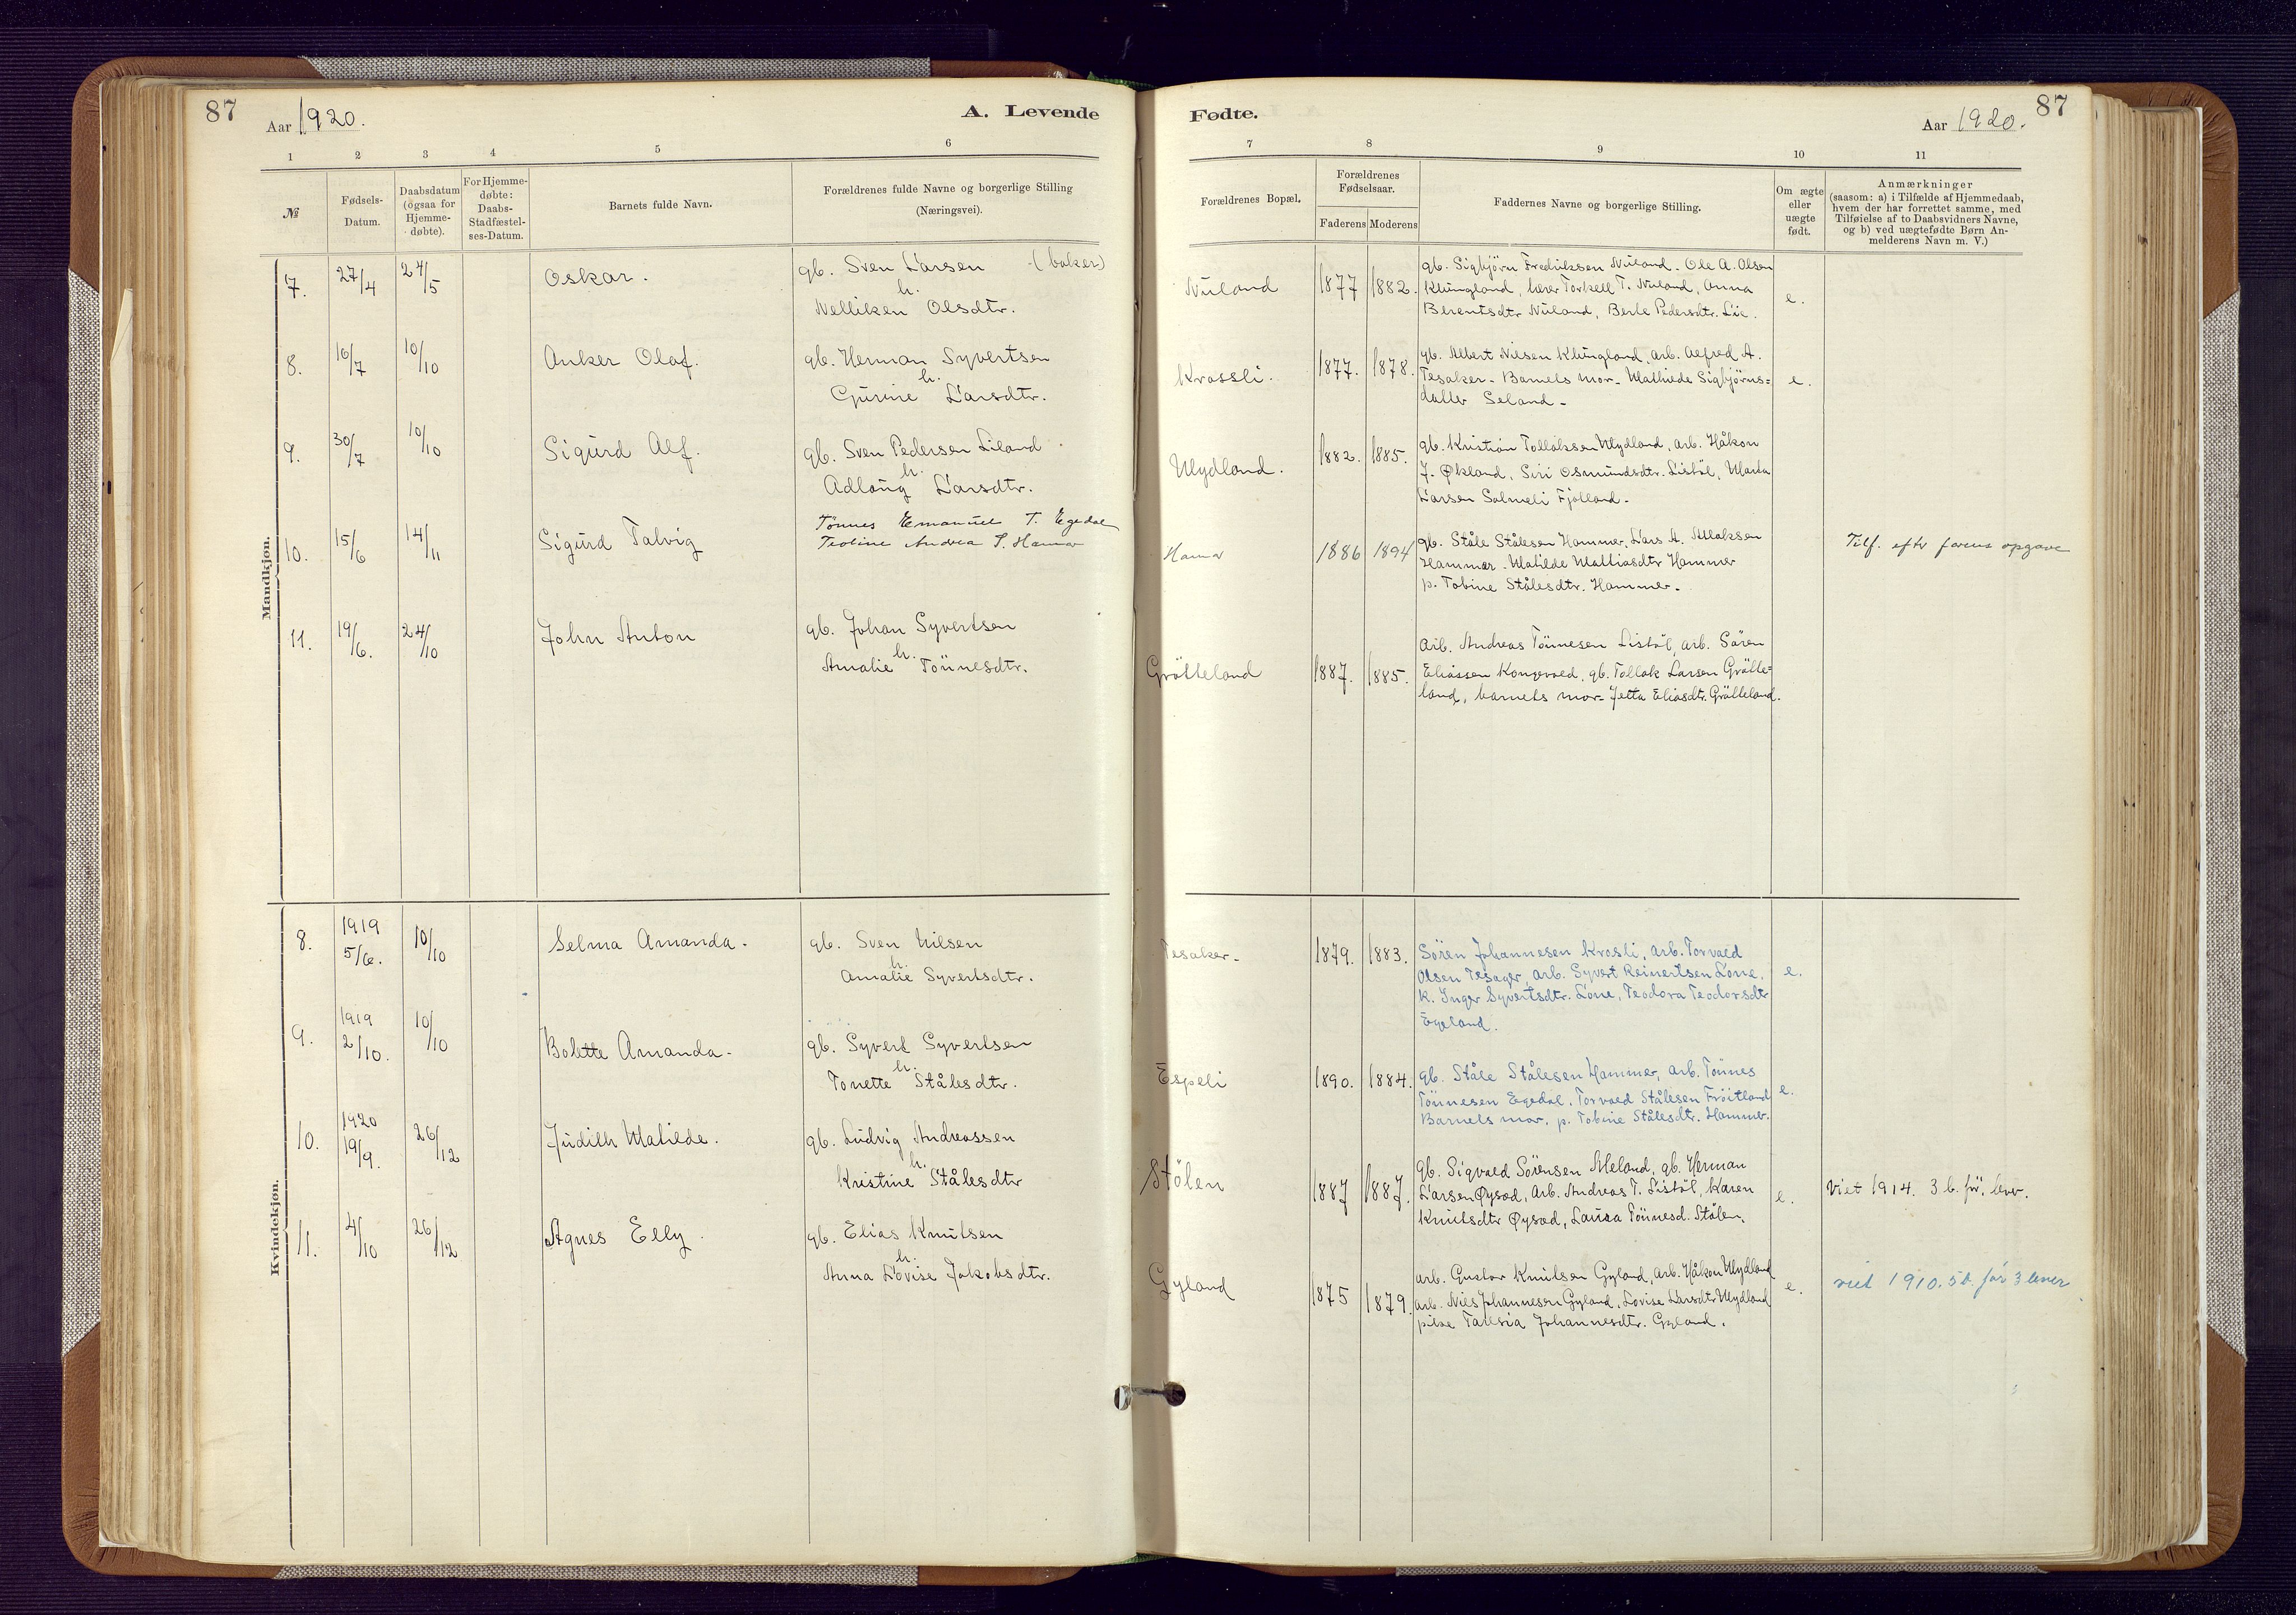 87
Aar 1920.
A. Levende
Fødte.
Aar 1920.
87
1 2 3 4 5 6
7 8 9 10 11
№
Fødsels-
Datum.
Daabsdatum
(ogsaa for
Hjemme-
døbte).
For Hjemme-
døbte:
Daabs-
Stadfæstel-
ses-Datum.
Barnets fulde Navn.
Forældrenes fulde Navne og borgerlige Stilling
(Næringsvei).
Forældrenes Bopæl.
Forældrenes
Fødselsaar.
Faderens Moderens
Faddernes Navne og borgerlige Stilling.
Om ægte
eller
uægte
født.
Anmærkninger
(saasom: a) i Tilfælde af Hjemmedaab,
hvem der har forrettet samme, med
Tilføielse af to Daabsvidners Navne,
og b) ved uægtefødte Børn An-
melderens Navn m. V.)
Mandkjøn.
7. 27/4 24/5 Oskar. gb. Sven Larsen (baker)
h.
Nelliken Olsdtr.
Nuland 1877 1882.
gb. Sigbjörn Fredriksen Nuland. Ole A. Olsen
Klungland, lærer Torkell T. Nuland, Anna
Berentsdtr Nuland, Berte Pedersdtr. Lie.
e.
8. 16/7 10/10 Anker Olaf. gb. Herman Syvertsen
h.
Gurine Larsdtr.
Krossli. 1877. 1878.
gb. Albert Nilsen Klungland, arb. Alfred A.
Tesaker - Barnets mor - Mathilde Sigbjörns=
datter Seland -
e.
9. 30/7 10/10 Sigurd Alf. gb. Sven Pedersen Liland
h.
Adlaug Larsdtr.
Mydland. 1882. 1885.
gb. Kristian Tollaksen Mydland, arb. Håkon
J. Økland, Siri Osmundsdtr. Listöl, Marta
Larsen Salmeli Fjolland -
10. 15/6 14/11 Sigurd Talvig
Tönnes Emanuel T. Egedal
Teoline Andrea S. Hamar
Hamar 1886 1894
gb. Ståle Stålesen Hammer, Lars A. Allaksen
Hammer - Matilde Mathiasdtr Hammer
p. Tobine Stålesdtr. Hammer -
Tilf. eftr farens opgave
11. 19/6. 24/10 John Anton gb. Johan Syvertsen
h.
Amalie Tönnesdtr.
Grötteland 1887. 1885.
Arb. Andreas Tönnesen Listöl, arb. Sören
Eliassen Kongevold, gb. Tollak Larsen Grötte=
land, barnets mor - Jetta Eliasdtr. Grötteland.
Kvindekjøn.
8. 1919
5/6. 10/10 Selma Amanda - gb. Sven Nilsen
h.
Amalie Syvertsdtr.
Tesaker - 1879. 1883.
Sören Johannesen Krosli, arb. Torvald
Olsen Tesager, arb. Syvert Reinertsen Lone.
K. Inger Syvertsdtr. Lone, Teodora Teodorsdtr
Egeland.
e.
9. 1919
2/10. 10/10 Bolette Amanda - gb. Syvert Syvertsen
h.
Tonette Stålesdtr.
Espeli 1890. 1884.
gb. Ståle Stålesen Hammer, arb. Tönnes
Tönnesen Egedal. Torvald Stålesen Fröitland
Barnets mor. p. Tobine Stålesdtr. Hammer.
e.
10. 1920
19/9. 26/12 Judith Matilde. gb. Ludvig Andreassen
h.
Kristine Stålesdtr
Stölen 1887 1887.
gb. Sigvald Sörensen Meland, gb. Herman
Larsen Øysæd, Arb. Andreas T. Listöl, Karen
Knutsdtr Øysæd, Laura Tönnesd. Stölen.
e.
Viet 1914. 3 b. för. lever.
11. 4/10 26/12 Agnes Elly. gb. Elias Knutsen
h.
Anna Lovise Jakobsdtr.
Gyland 1875 1879.
arb. Gustav Knutsen Gyland, arb. Håkon Mydland
arb. Nils Johannesen Gyland, Lovise Larsdtr Mydland
pike Johannesdtr. Gyland.
e.
viet 1910. 5 b. før 3 lever